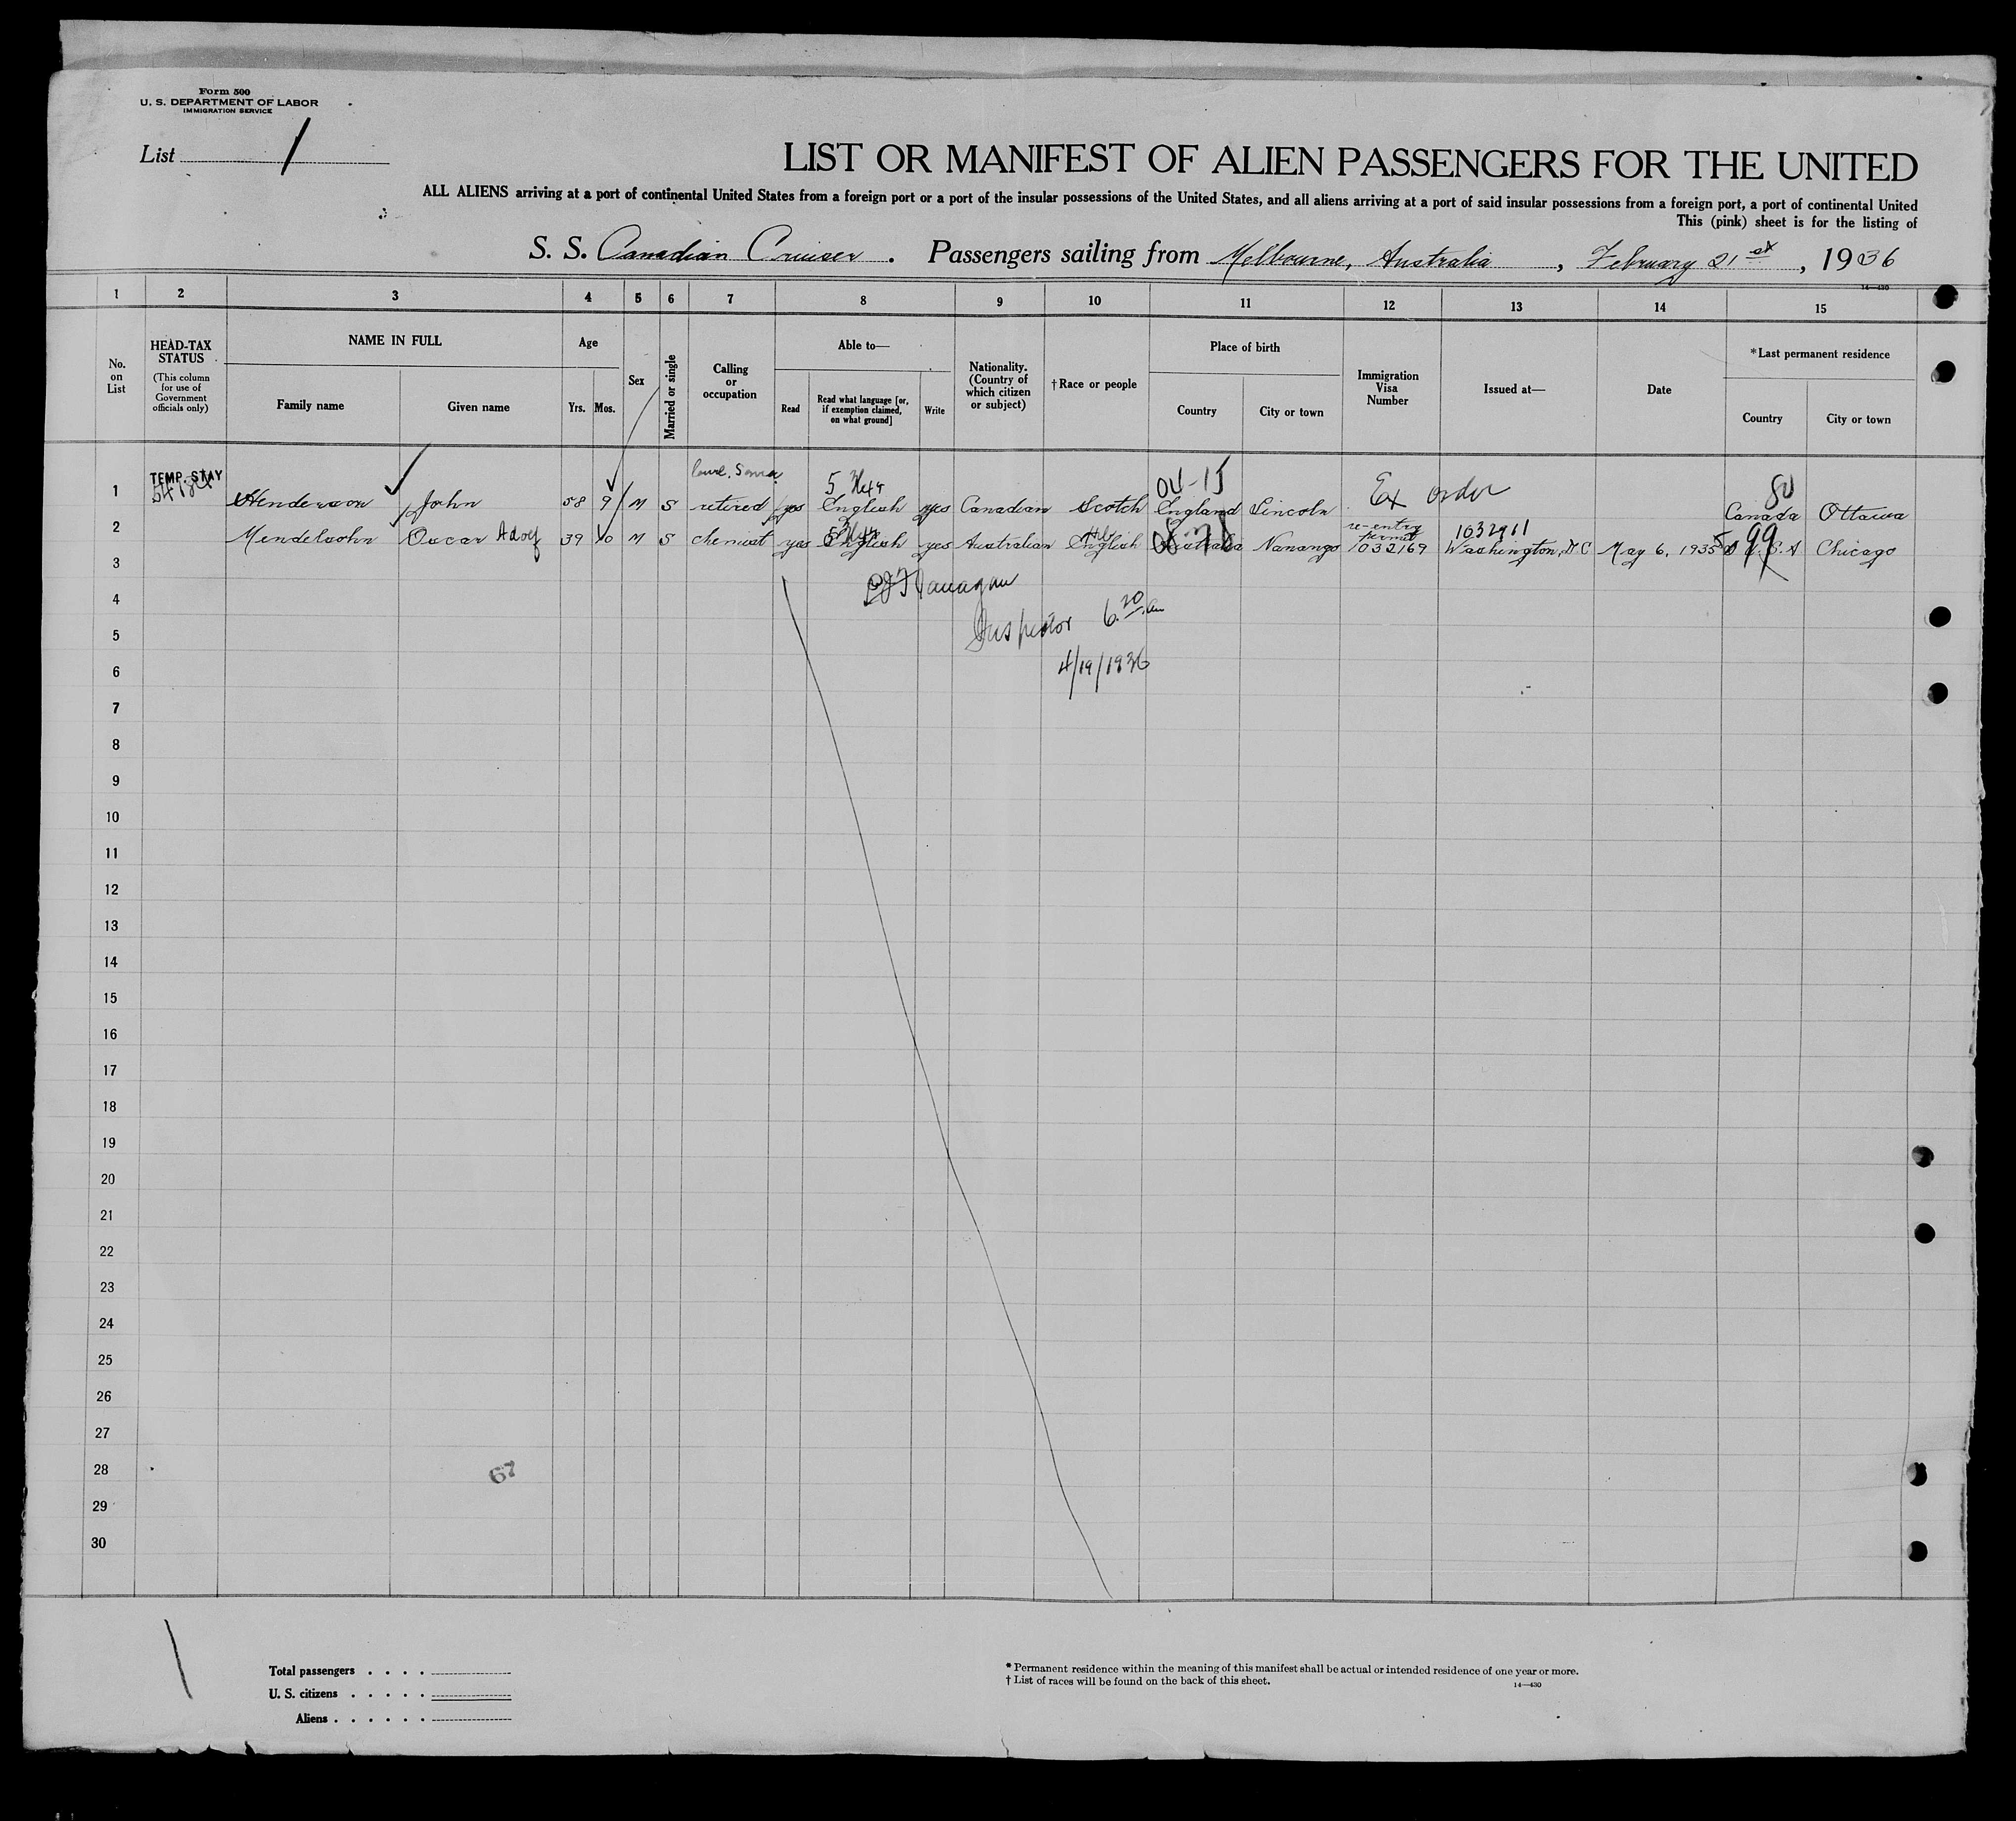 Form 500
U. S. DEPARTMENT OF LABOR
IMMIGRATION SERVICE
List 1
LIST OR MANIFEST OF ALIEN PASSENGERS FOR THE UNITED
ALL ALIENS arriving at a port of continental United States from a foreign port or a port of the insular possessions of the United States, and all aliens arriving at a port of said insular possessions from a foreign port, a port of continental United
This (pink) sheet is for the listing of
S. S. Canadian Cruiser . Passengers sailing from Melbourne, Australia , February 21st , 1936
14—430
1 2 3 4 5 6 7 8 9 10 11 12 13 14 15
No. on List
HEAD-TAX STATUS
(This column for use of Government officials only)
NAME IN FULL
Family name Given name
Age
Yrs. Mos.
Sex
Married or single
Calling or occupation
Able to—
Read
Read what language [or, if exemption claimed, on what ground]
Write
Nationality. (Country of which citizen or subject)
†Race or people
Place of birth
Country City or town
Immigration Visa Number
Issued at—
Date
*Last permanent residence
Country City or town
TEMP. STAY
04-15 Ex order 80
1 Henderson John 58 9 M S retired yes English yes Canadian Scotch England Lincoln Canada Ottawa
re-entry permit 1032961
2 Mendelsohn Oscar Adolf 39 10 M S chemist yes English yes Australian English Australia Nanango 1032169 Washington, D C May 6, 1935 U.S.A Chicago
99
3
4
Inspector 6.20 am
5
4/19/1936
6
7
8
9
10
11
12
13
14
15
16
17
18
19
20
21
22
23
24
25
26
27
28
67
29
30
Total passengers . . . .
U. S. citizens . . . . .
Aliens . . . . . .
* Permanent residence within the meaning of this manifest shall be actual or intended residence of one year or more.
† List of races will be found on the back of this sheet.
14—430